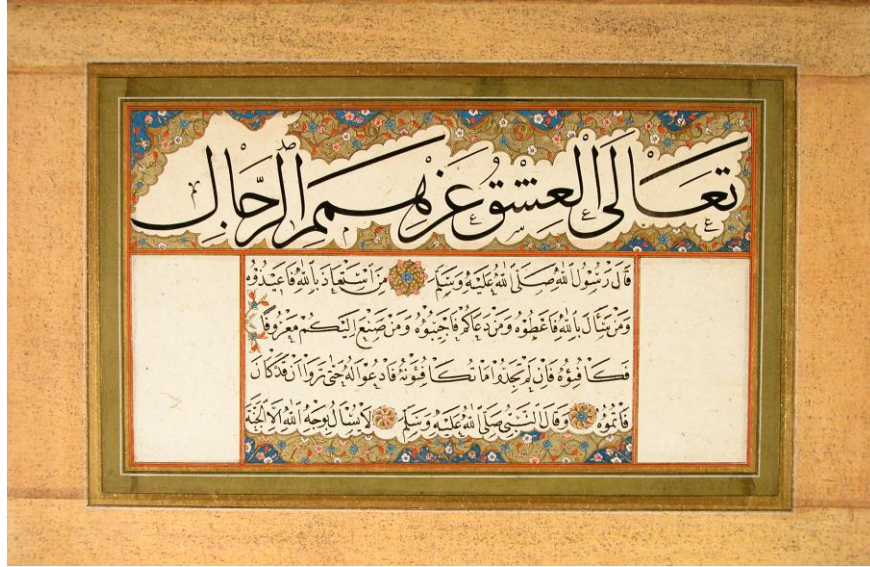 تَعَالَى الْعِشْقُ عَنْ هِمَمِ الرِّجَالِ
قَالَ رَسُولُ اللّٰهِ صَلَّى اللّٰهُ عَلَيْهِ وَسَلَّمَ مَنِ اسْتَعَاذَ بِاللّٰهِ فَاَعِيذُوهُ
وَمَنْ سَأَلَ بِاللّٰهِ فَاَعْطُوهُ وَمَنْ دَعَاكُمْ فَاَجِيبُوهُ وَمَنْ صَنَعَ اِلَيْكُمْ مَعْرُوفًا
فَكَافِئُوهُ فَاِنْ لَمْ تَجِدُوا مَا تُكَافِئُونَهُ فَادْعُوا لَهُ حَتّٰى تَرَوْا اَنْ قَدْ كَافَأْتُمُوهُ وَقَالَ النَّبِيُّ صَلَّى اللّٰهُ عَلَيْهِ وَسَلَّمَ لَا يُسْأَلُ بِوَجْهِ اللّٰهِ اِلَّا الْجَنَّةَ